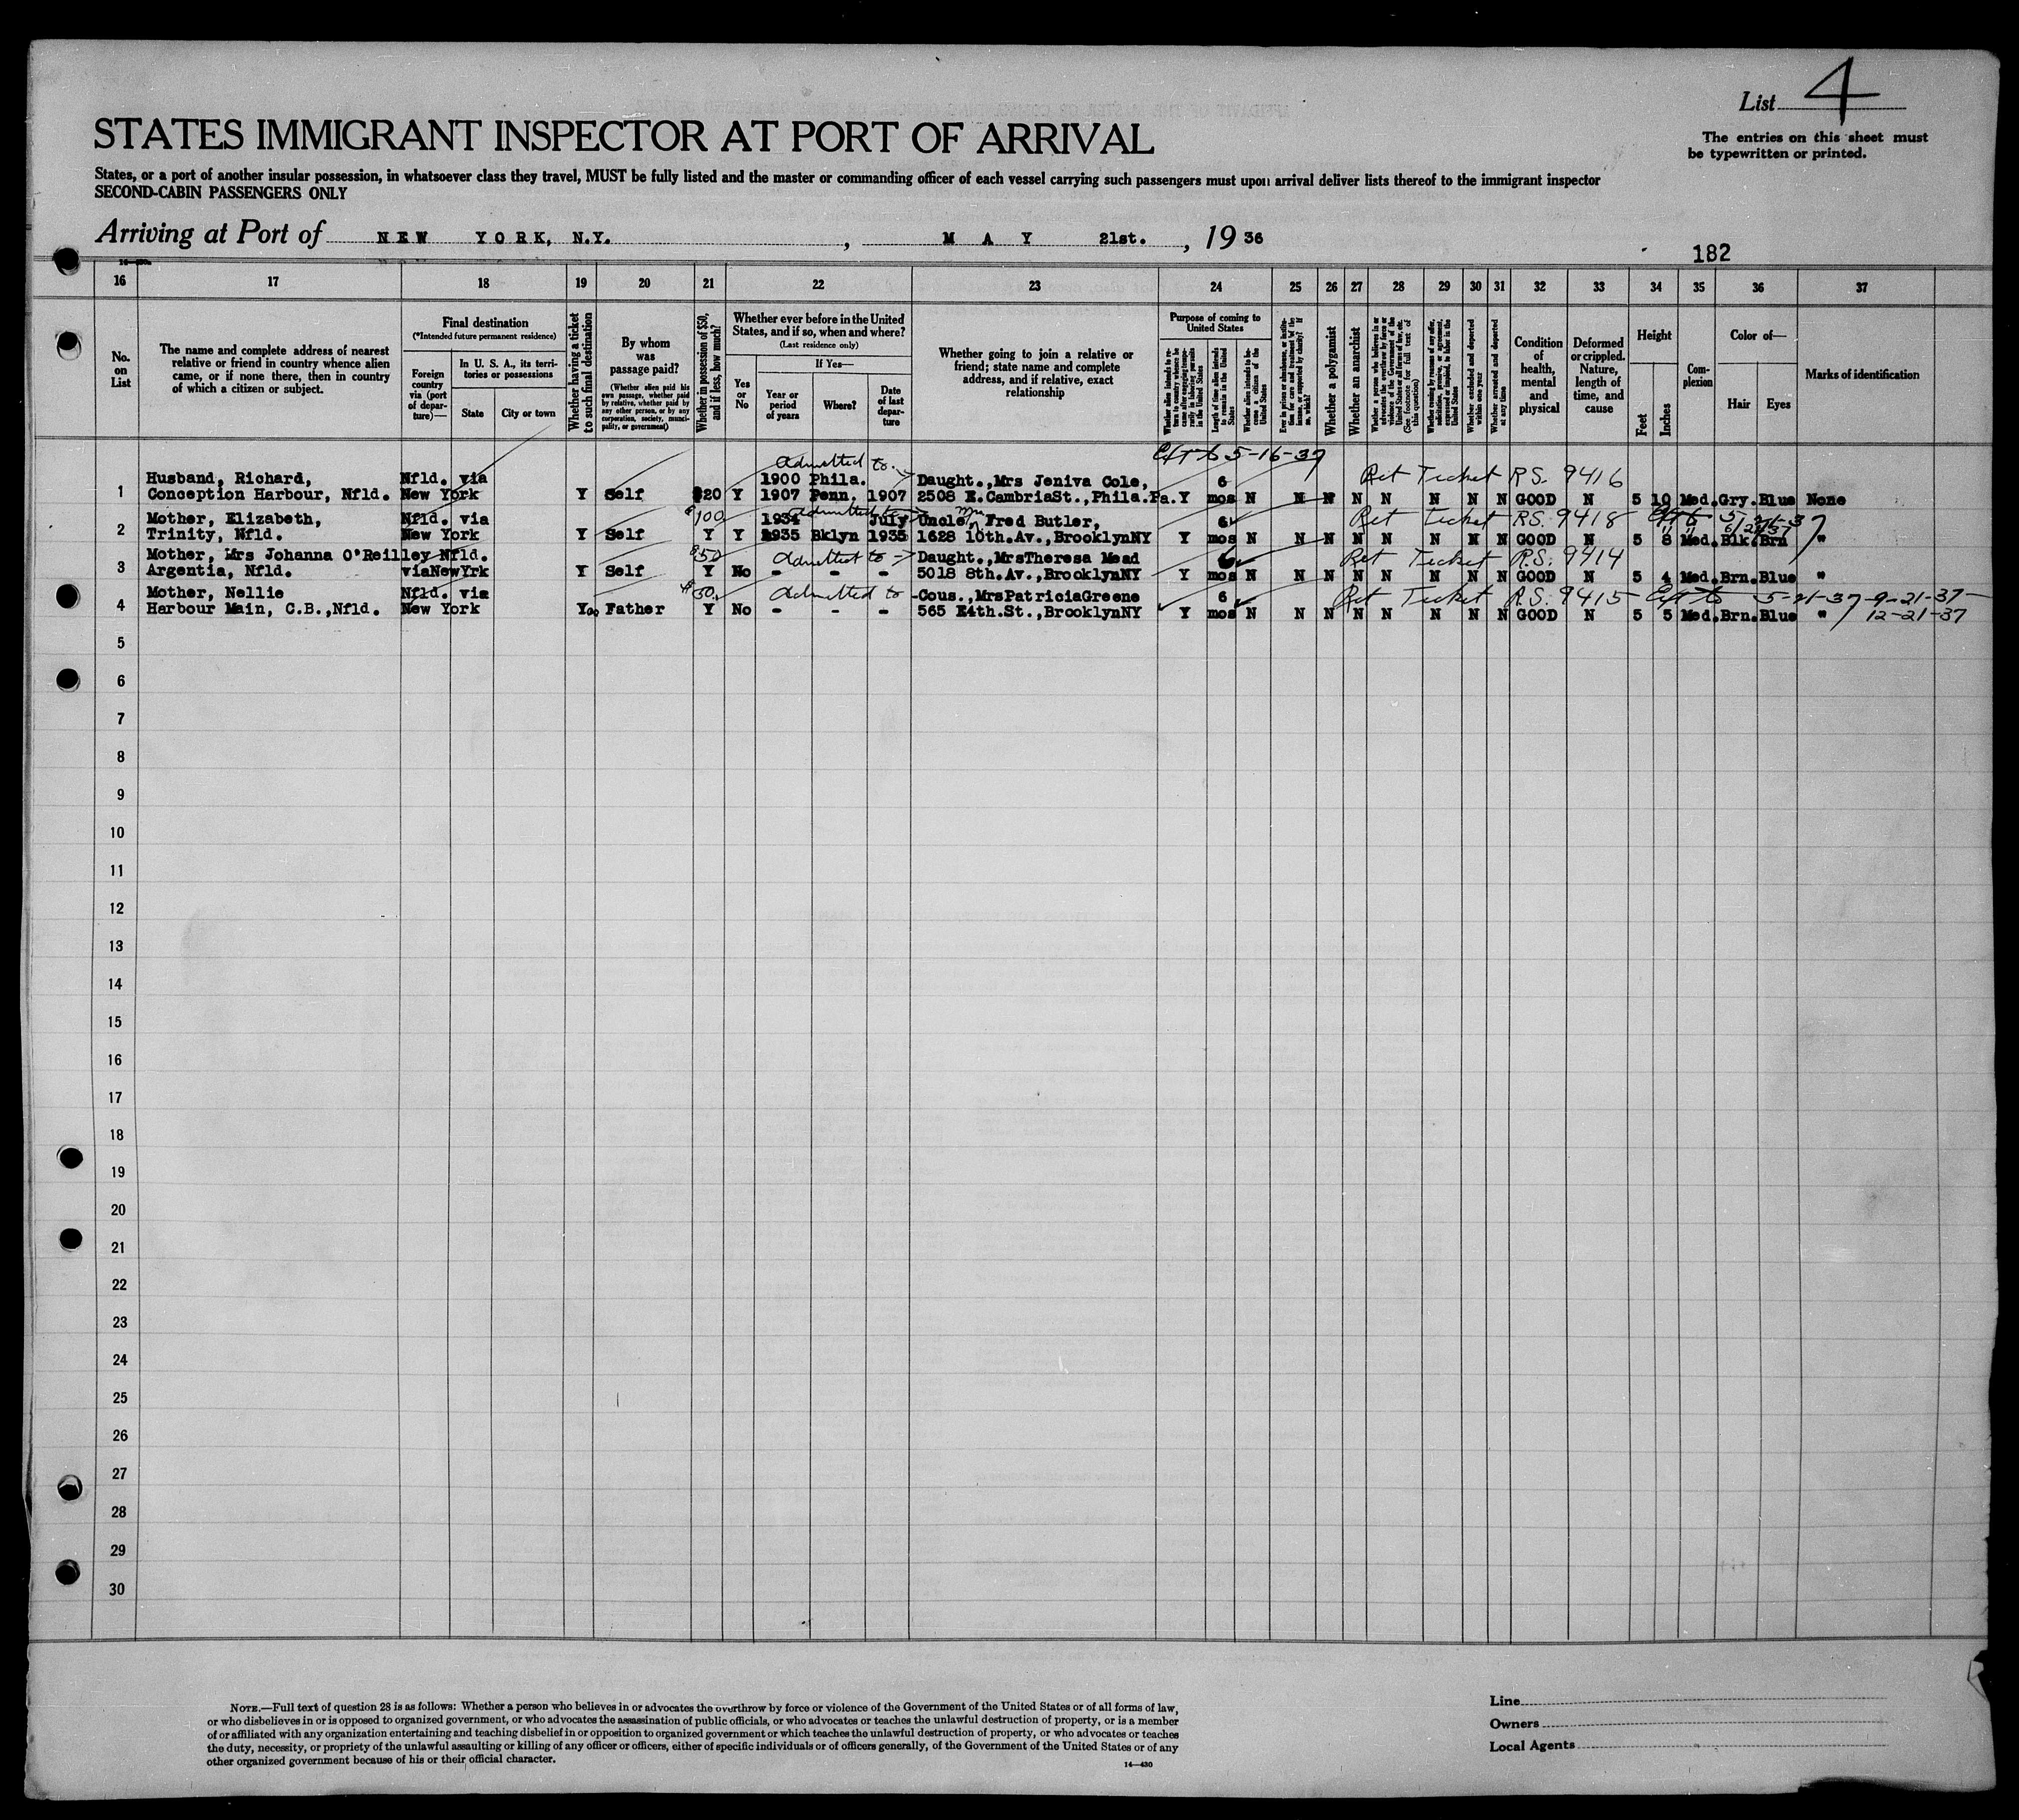 List 4
The entries on this sheet must
be typewritten or printed.
STATES IMMIGRANT INSPECTOR AT PORT OF ARRIVAL
States, or a port of another insular possession, in whatsoever class they travel, MUST be fully listed and the master or commanding officer of each vessel carrying such passengers must upon arrival deliver lists thereof to the immigrant inspector
SECOND-CABIN PASSENGERS ONLY
Arriving at Port of NEW YORK, N.Y., MAY 21st., 1936
182
16 17 18 19 20 21 22 23 24 25 26 27 28 29 30 31 32 33 34 35 36 37
No. on List
The name and complete address of nearest
relative or friend in country whence alien
came, or if none there, then in country
of which a citizen or subject.
Final destination
(*Intended future permanent residence)
Foreign country via (port of departure)—
In U. S. A., its territories or possessions
State
City or town
Whether having a ticket to such final destination
By whom was passage paid?
(Whether alien paid his own passage, whether paid by relative, whether paid by any other person, or by any corporation, society, municipality, or government)
Whether in possession of $50, and if less, how much?
Whether ever before in the United
States, and if so, when and where?
(Last residence only)
Yes or No
If Yes—
Year or period of years
Where?
Date of last departure
Whether going to join a relative or
friend; state name and complete
address, and if relative, exact
relationship
Purpose of coming to United States
Length of time alien intends to remain in the United States
Whether a polygamist
Whether an anarchist
Whether excluded and deported within one year
Whether arrested and deported at any time
Condition of health, mental and physical
Deformed or crippled. Nature, length of time, and cause
Height
Feet
Inches
Complexion
Color of—
Hair
Eyes
Marks of identification
admitted to 5-16-37
Husband, Richard, Nfld. via 1900 Phila. Daught.,Mrs Jeniva Cole, 6 Ret Ticket RS. 9416
1 Conception Harbour, Nfld. New York Y Self $20 Y 1907 Penn. 1907 2508 E.CambriaSt.,Phila.Pa. Y mos N N N N N N N N GOOD N 5 10 Med. Gry. Blue None
Mother, Elizabeth, Nfld. via $100 1934 admitted to July Uncle, Fred Butler, 6 Ret Ticket RS. 9418
2 Trinity, Nfld. New York Y Self Y Y 1935 Bklyn 1935 1628 10th.Av.,BrooklynNY Y mos N N N N N N N N GOOD N 5 8 Med. Blk. Brn "
Mother, Mrs Johanna O'Reilley Nfld. $50 admitted to Daught.,MrsTheresa Mead 6 Ret Ticket RS. 9414
3 Argentia, Nfld. viaNewYrk Y Self Y No - - - 5018 8th.Av.,BrooklynNY Y mos N N N N N N N N GOOD N 5 4 Med. Brn. Blue "
Mother, Nellie Nfld. via $50. admitted to -Cous.,MrsPatriciaGreene 6 Ret Ticket RS. 9415 5-21-37 9-21-37
4 Harbour Main, C.B.,Nfld. New York Y Father Y No - - - 565 E4th.St.,BrooklynNY Y mos N N N N N N N N GOOD N 5 5 Med. Brn. Blue " 12-21-37
5
6
7
8
9
10
11
12
13
14
15
16
17
18
19
20
21
22
23
24
25
26
27
28
29
30
NOTE.—Full text of question 28 is as follows: Whether a person who believes in or advocates the overthrow by force or violence of the Government of the United States or of all forms of law,
or who disbelieves in or is opposed to organized government, or who advocates the assassination of public officials, or who advocates or teaches the unlawful destruction of property, or is a member
of or affiliated with any organization entertaining and teaching disbelief in or opposition to organized government or which teaches the unlawful destruction of property, or who advocates or teaches
the duty, necessity, or propriety of the unlawful assaulting or killing of any officer or officers, either of specific individuals or of officers generally, of the Government of the United States or of any
other organized government because of his or their official character.
14—430
Line
Owners
Local Agents